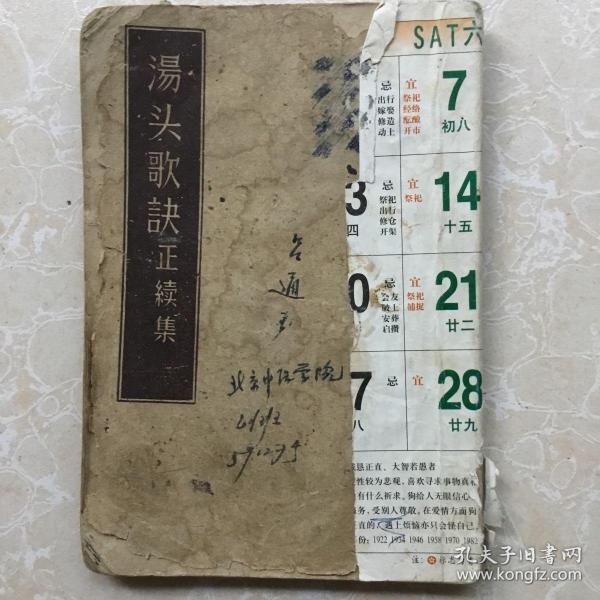 湯头歌訣正續集
北京中医学院
SAT六
忌
宜
7
初八
出行
嫁娶
修造
动土
祭祀
经络
酝酿
开市
3
四
忌
宜
14
十五
祭祀
出行
修仓
开渠
祭祀
0
忌
宜
21
廿二
会友
破土
安葬
启攒
祭祀
捕捉
7
八
忌
宜
28
廿九
恳正直、大智若愚者
性较为悲观,喜欢寻求事物真
有什么祈求。狗给人无眼信心
务,受别人尊敬。在爱情方面狗
直的,遇上烦恼亦只会怪自己
份:1922 1934 1946 1958 1970 1982
注:
孔夫子旧书网
www.kongfz.com